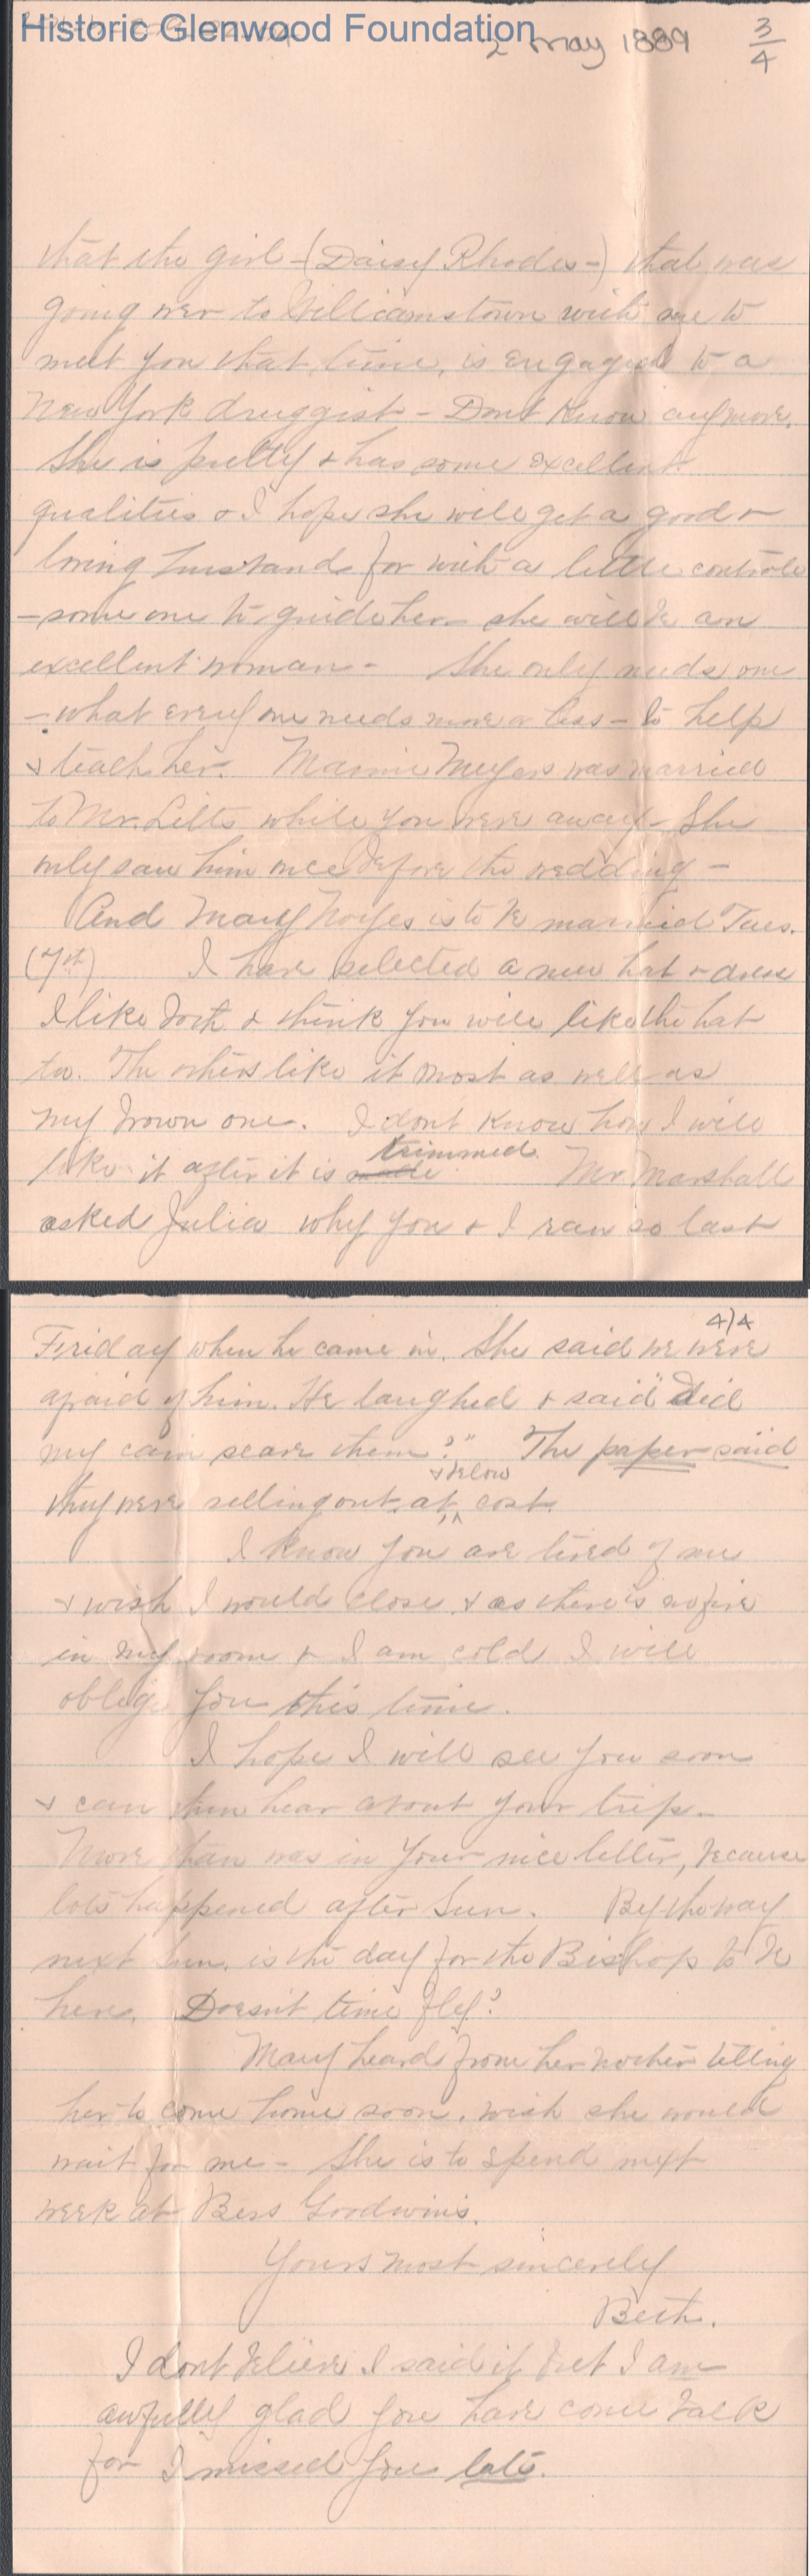 Historic Glenwood Foundation
2 May 1889
3/4
that the girl - (Daisy Rhodes -) that was
going over to Williamstown with me to
meet you that time, is engaged to a
New York druggist - Dont know anymore.
She is pretty & has some excellent
qualities & I hope she will get a good &
loving husband for with a little controle
- some one to guide her she will be an
excellent woman - She only needs one
- what every one needs more or less - to help
& teach her. Mamie Meyers was married
to Mr. Litts while you were away - She
only saw him once before the wedding -
And Mary Noyes is to be married Tues.
(7th) I have selected a new hat & dress
I like both & think you will like the hat
too. The others like it most as well as
my brown one. I dont know how I will
like it after it is made trimmed. Mr Marshall
asked Julia why you & I ran so last
4/4
Friday when he came in. She said we were
afraid of him. He laughed & said "Did
my cain scare them?" The paper said
they were selling out at & below cost.
I know you are tired of me
& wish I would close & as there is no fire
in my room & I am cold I will
oblige you this time.
I hope I will see you soon
& can then hear about your trip -
More than was in your nice letter, because
lots happened after Sun. By the way
next Sun. is the day for the Bishop to be
here. Doesn't time fly?
Mary heard from her mother telling
her to come home soon. wish she would
wait for me - She is to spend next
week at Bess Goodwin's.
Yours most sincerely
Beth.
I dont believe I said it but I am
awfully glad you have come back
for I missed you lots.